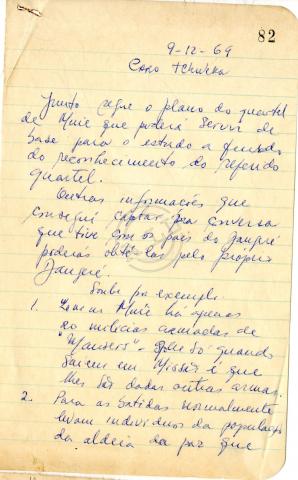 82
9-12-69
Caro Tchukka
Junto segue o plano do quartel
de Muié que poderá servir de
base para o estudo a quando
do reconhecimento do referido
quartel.
Outras informações que
consegui captar na conversa
que tive com os pais do
poderás obtê-las pelo próprio
Soube por exemplo:
1. Muié há apenas
20 milícias armadas de
"Mausers". Só quando
saiem em Missão é que
lhes são dadas outras armas.
2. Para as batidas normalmente
levam individuos da população
da aldeia da paz que